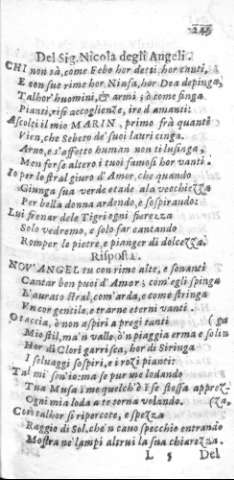 245
Del Sig. Nicola degli Angeli.
CHI non sà, come Febo hor detti, hor canti,
E con sue rime hor Ninfa, hor Dea dipinga,
Talhor' huomini, & armi; ò come finga
Pianti, risi accoglienze, ire d'amanti:
Ascolti il mio MARIN, primo frà quanti
Vien, che Sebeto de' suoi lauri cinga.
Arno, e s'affetto human non ti lusinga,
Men forse altero i tuoi famosi hor vanti.
Io per lo stral giuro d'Amor, che quando
Giunga sua verde etade ala vecchiezza
Per bella donna ardendo, e sospirando:
Lui frenar dele Tigri ogni fierezza
Solo vedremo, e solo far cantando
Romper le pietre, e pianger di dolcezza.
Risposta.
NOV' ANGEL tu con rime alte, e sonanti
Cantar ben puoi d'Amor; com'egli spinga
L'aurato stral, com'arda, e come stringa
Vn cor gentile, e trarne eterni vanti.
O taccia, ò non aspiri a pregi tanti (ga
Mio stil, ma'n valle, ò'n piaggia erma e solin
Hor di Clori garrisca, hor di Siringa
I seluaggi sospiri, e i rozi pianti:
Tal mi son'io: ma se pur me lodando
Tua Musa i me quelch'è i se stessa apprez-
Ogni mia loda a te torna volando. (za,
Con talhor si ripercote, e spezza
Raggio di Sol, che'n cauo specchio entrando
Mostra ne' lampi altrui la sua chiarezza.
L 5 Del